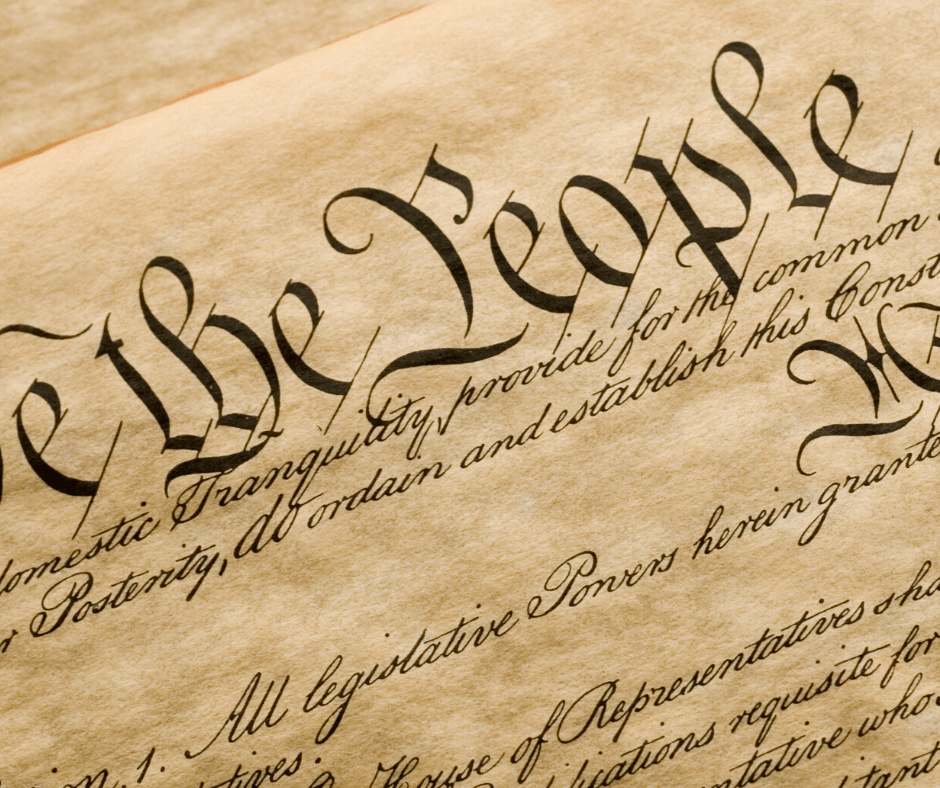 We the People
domestic Tranquility, provide for the common
Posterity, do ordain and establish this Const
All legislative Powers herein grante
1.
tives. House of Representatives sha
ications requisite for
ntative who